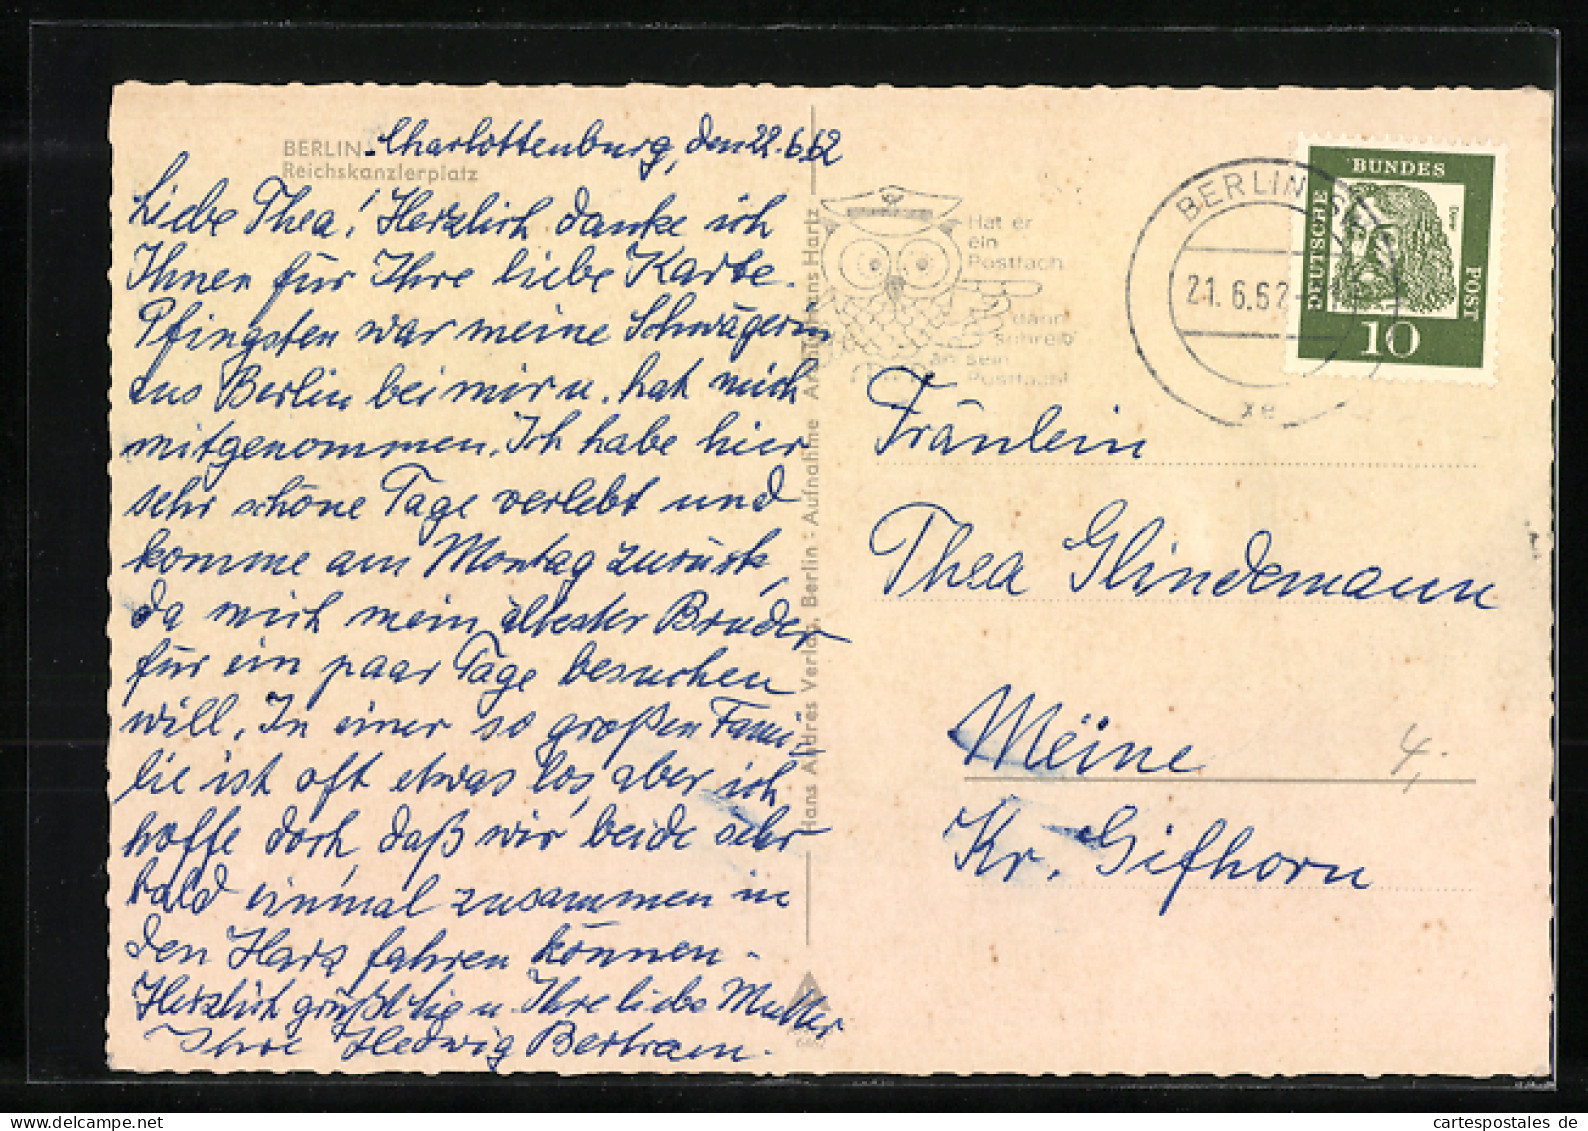 BERLIN-Charlottenburg, den 22.6.62
Reichskanzlerplatz
Liebe Thea! Herzlich danke ich
Ihnen für Ihre liebe Karte.
Pfingsten war meine Schwägerin
aus Berlin bei mir u. hat mich
mitgenommen. Ich habe hier
sehr schöne Tage verlebt und
komme am Montag zurück,
da mich mein ältester Bruder
für ein paar Tage besuchen
will. In einer so großen Fami-
lie ist oft etwas los, aber ich
hoffe doch, daß wir beide sehr
bald einmal zusammen in
den Harz fahren können.
Herzlich grüßt Sie u. Ihre liebe Mutter
Ihre Hedwig Bertram.
Hans Andres Verlag, Berlin · Aufnahme Hans Hartz
Hat er
ein
Postfach
dann
schreib
an sein
Postfach!
BERLIN
21.6.62
xe
DEUTSCHE
BUNDES
POST
10
Fräulein
Thea Glindemann
Meine
4,-
Kr. Gifhorn
cartespostales.de